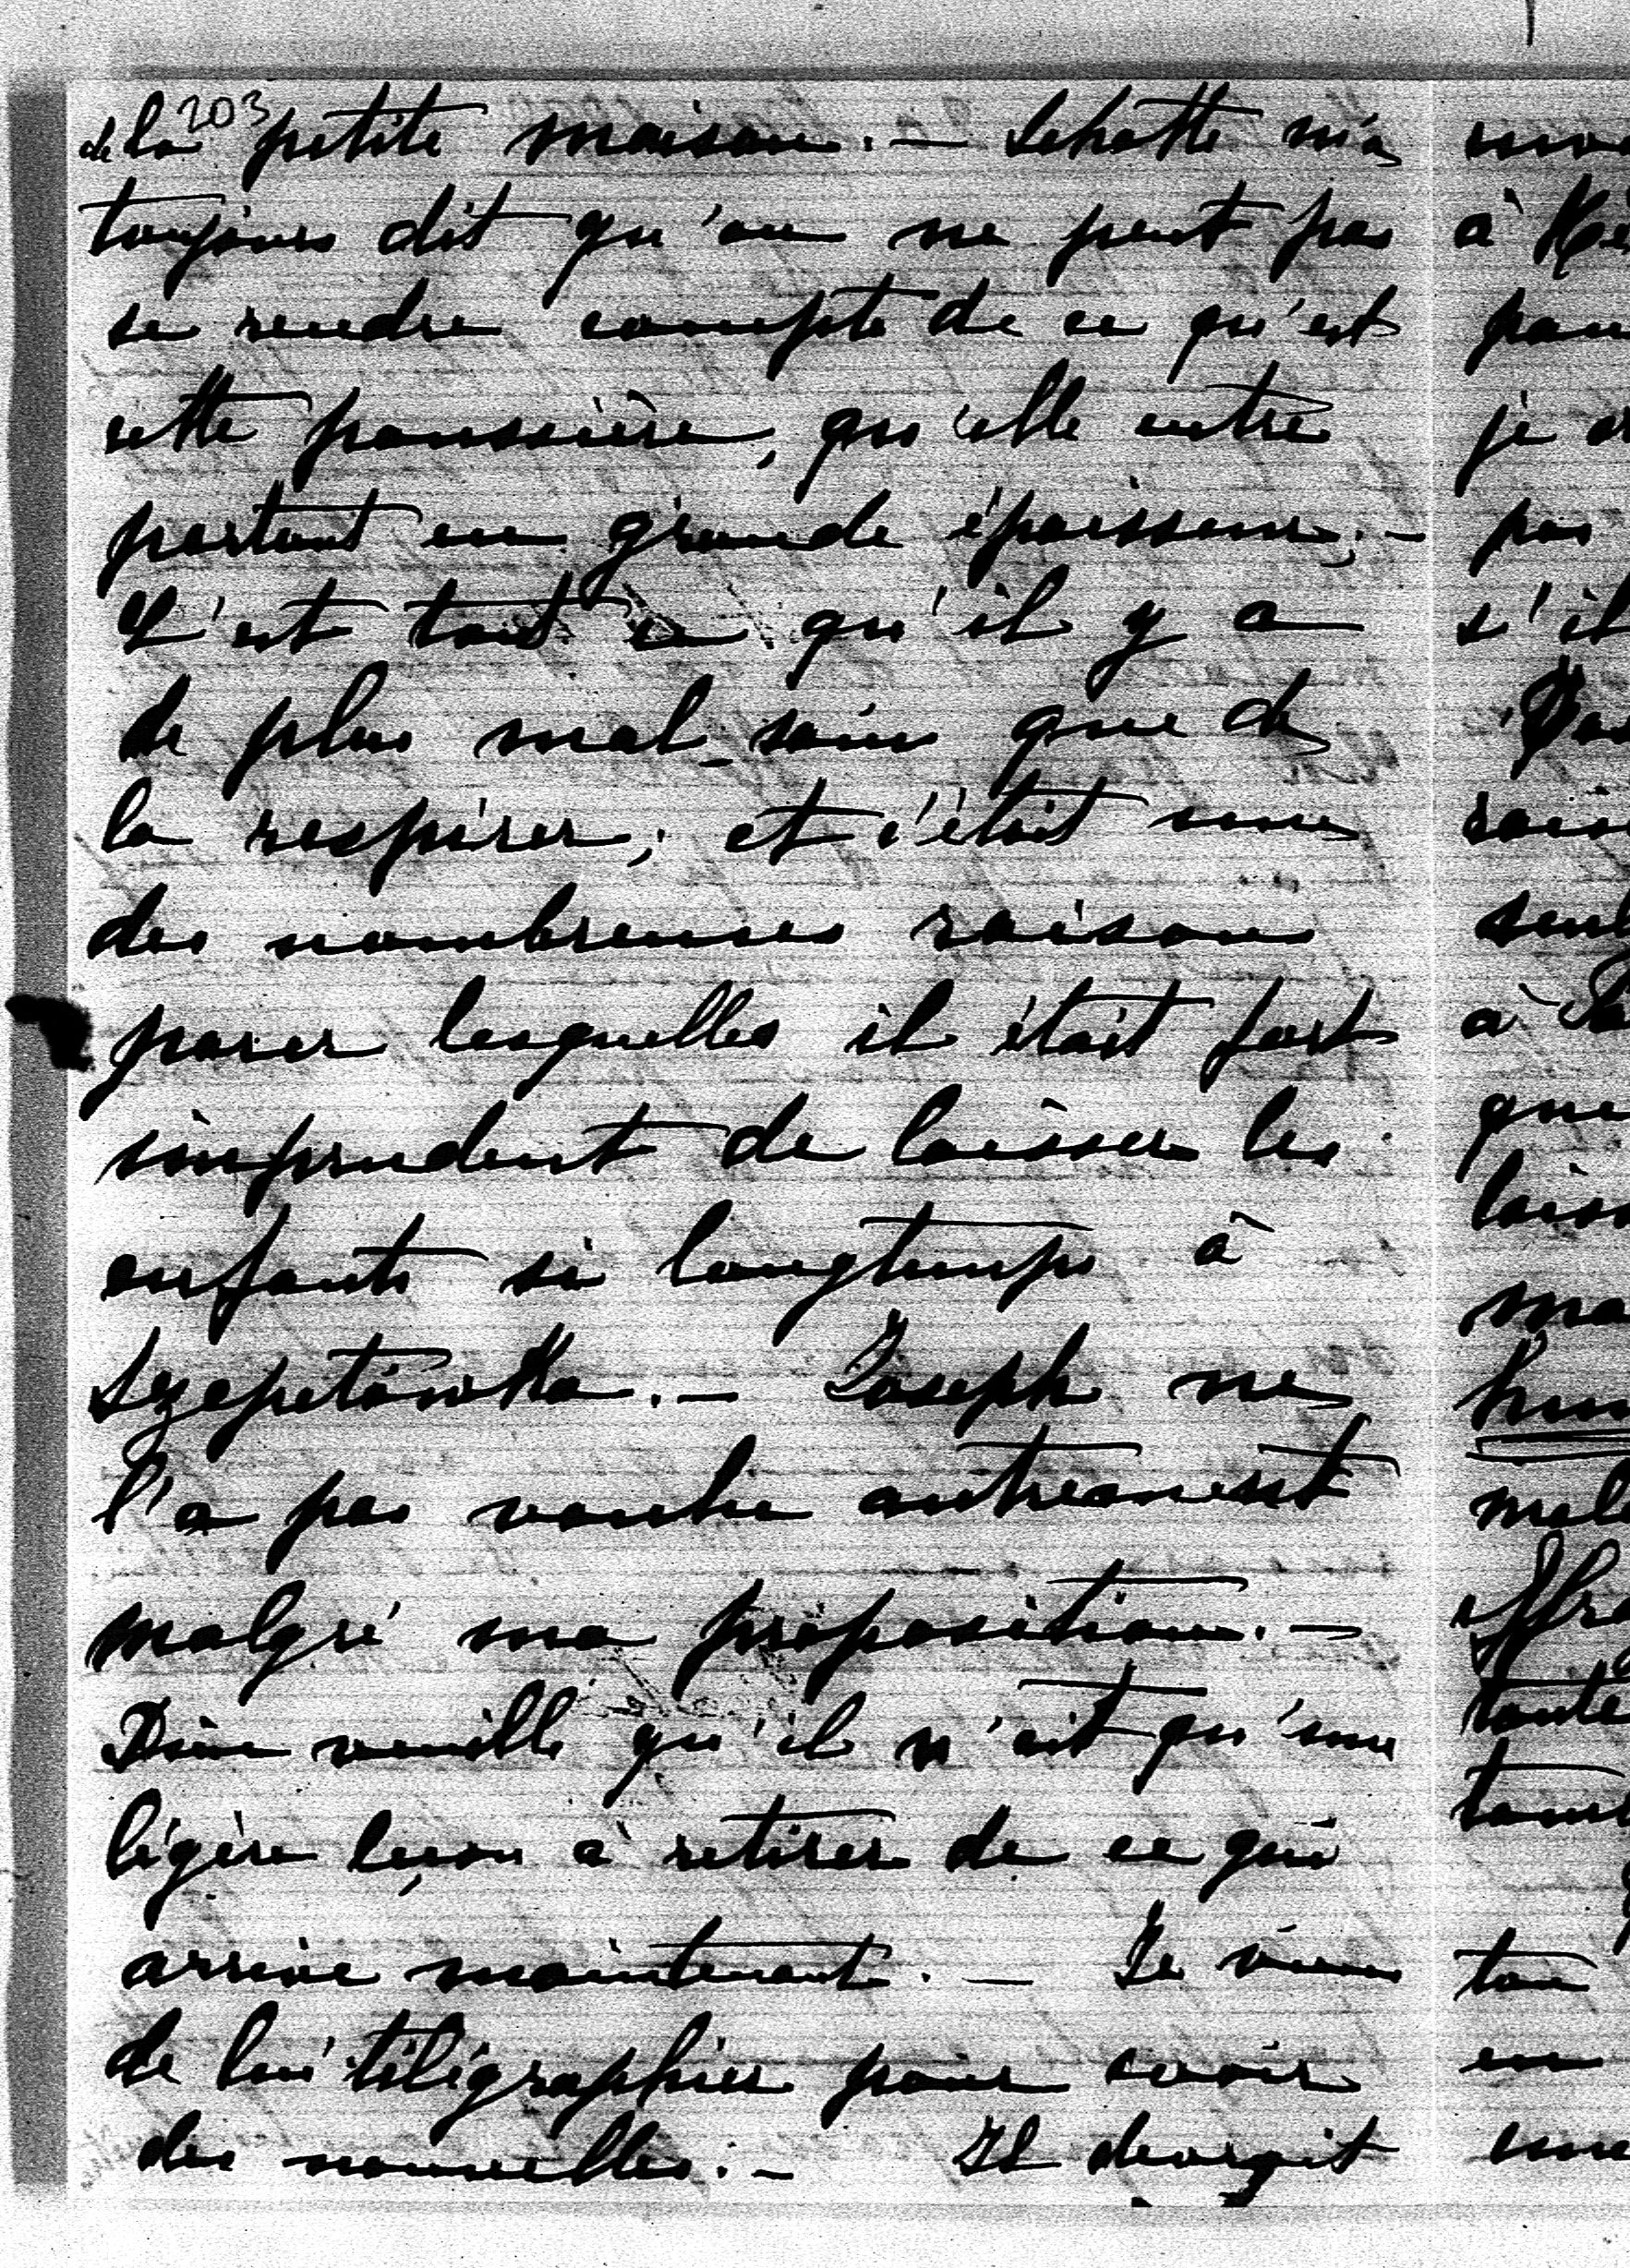 203
de la petite maison. — Schotte m'a
toujours dit qu'on ne peut pas
se rendre compte de ce qu'est
cette poussière, qu'elle entre
partout en grande épaisseur; —
C'est tout ce qu'il y a
de plus mal-sain que de
la respirer; et c'était une
des nombreuses raisons
pour lesquelles il était fort
imprudent de laisser les
enfants si longtemps à
Szepetówka. — Joseph ne
l'a pas voulu autrement
malgré ma proposition. —
Dieu veuille qu'il n'ait qu'une
légère leçon à retirer de ce qui
arrive maintenant. — Je viens
de lui télégraphier pour avoir
des nouvelles. — Il devrait
à
je
pas
s'il
à
que
toute
ton
en
une